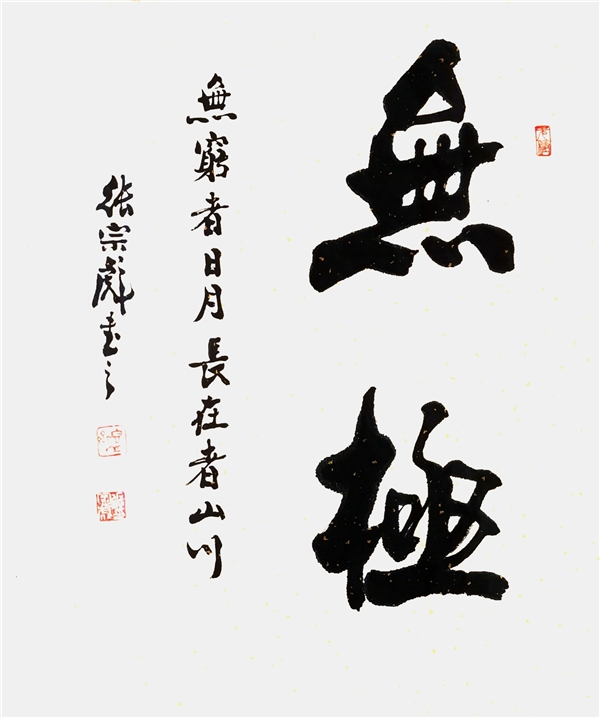 無極
無窮者日月長在者山川
張宗彪書之